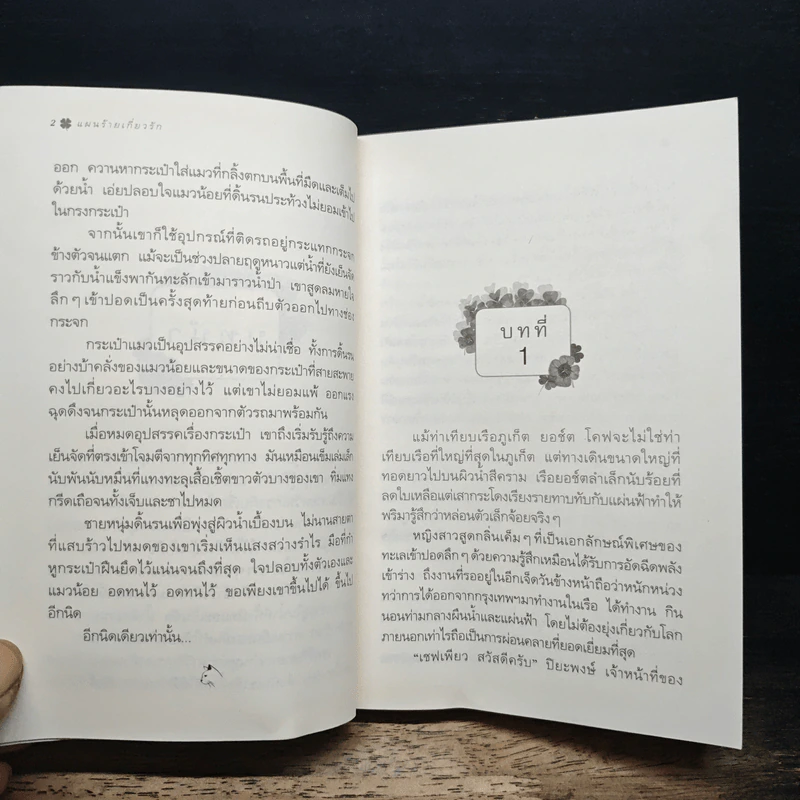 2 แผนร้ายเกี่ยวรัก
ออก ควานหากระเป๋าใส่แมวที่กลิ้งตกบนพื้นที่มืดและเต็มไป
ด้วยน้ำ เอ่ยปลอบใจแมวน้อยที่ดิ้นรนประท้วงไม่ยอมเข้าไป
ในกรงกระเป๋า
จากนั้นเขาก็ใช้อุปกรณ์ที่ติดรถอยู่กระแทกกระจก
ข้างตัวจนแตก แม้จะเป็นช่วงปลายฤดูหนาวแต่น้ำที่ยังเย็นจัด
ราวกับน้ำแข็งพากันทะลักเข้ามาราวน้ำป่า เขาสูดลมหายใจ
ลึกๆ เข้าปอดเป็นครั้งสุดท้ายก่อนถีบตัวออกไปทางช่อง
กระจก
กระเป๋าแมวเป็นอุปสรรคอย่างไม่น่าเชื่อ ทั้งการดิ้นรน
อย่างบ้าคลั่งของแมวน้อยและขนาดของกระเป๋าที่สายสะพาย
คงไปเกี่ยวอะไรบางอย่างไว้ แต่เขาไม่ยอมแพ้ ออกแรง
ฉุดดึงจนกระเป๋านั้นหลุดออกจากตัวรถมาพร้อมกัน
เมื่อหมดอุปสรรคเรื่องกระเป๋า เขาถึงเริ่มรับรู้ถึงความ
เย็นจัดที่ตรงเข้าโจมตีจากทุกทิศทุกทาง มันเหมือนเข็มเล่มเล็ก
นับพันนับหมื่นที่แทงทะลุเสื้อเชิ้ตขาวตัวบางของเขา ทิ่มแทง
กรีดเถือจนทั้งเจ็บและชาไปหมด
ชายหนุ่มดิ้นรนเพื่อพุ่งสู่ผิวน้ำเบื้องบน ไม่นานสายตา
ที่แสบร้าวไปหมดของเขาเริ่มเห็นแสงสว่างรำไร มือที่กำ
หูกระเป๋าฝืนยึดไว้แน่นจนถึงที่สุด ใจปลอบทั้งตัวเองและ
แมวน้อย อดทนไว้ อดทนไว้ ขอเพียงเขาขึ้นไปได้ ขึ้นไป
อีกนิด
อีกนิดเดียวเท่านั้น...
บทที่
1
แม้ท่าเทียบเรือภูเก็ต ยอช์ต โคฟจะไม่ใช่ท่า
เทียบเรือที่ใหญ่ที่สุดในภูเก็ต แต่ทางเดินขนาดใหญ่ที่
ทอดยาวไปบนผิวน้ำสีคราม เรือยอช์ตลำเล็กนับร้อยที่
ลดใบเหลือแต่เสากระโดงเรียงรายทาบทับกับแผ่นฟ้าทำให้
พริมารู้สึกว่าหล่อนตัวเล็กจ้อยจริงๆ
หญิงสาวสูดกลิ่นเค็มๆ ที่เป็นเอกลักษณ์พิเศษของ
ทะเลเข้าปอดลึกๆ ด้วยความรู้สึกเหมือนได้รับการอัดฉีดพลัง
เข้าร่าง ถึงงานที่รออยู่ในอีกเจ็ดวันข้างหน้าถือว่าหนักหน่วง
ทว่าการได้ออกจากกรุงเทพฯ มาทำงานในเรือ ได้ทำงาน กิน
นอนท่ามกลางผืนน้ำและแผ่นฟ้า โดยไม่ต้องยุ่งเกี่ยวกับโลก
ภายนอกเท่าไรถือเป็นการผ่อนคลายที่ยอดเยี่ยมที่สุด
“เชฟเพียว สวัสดีครับ” ปิยะพงษ์ เจ้าหน้าที่ของ